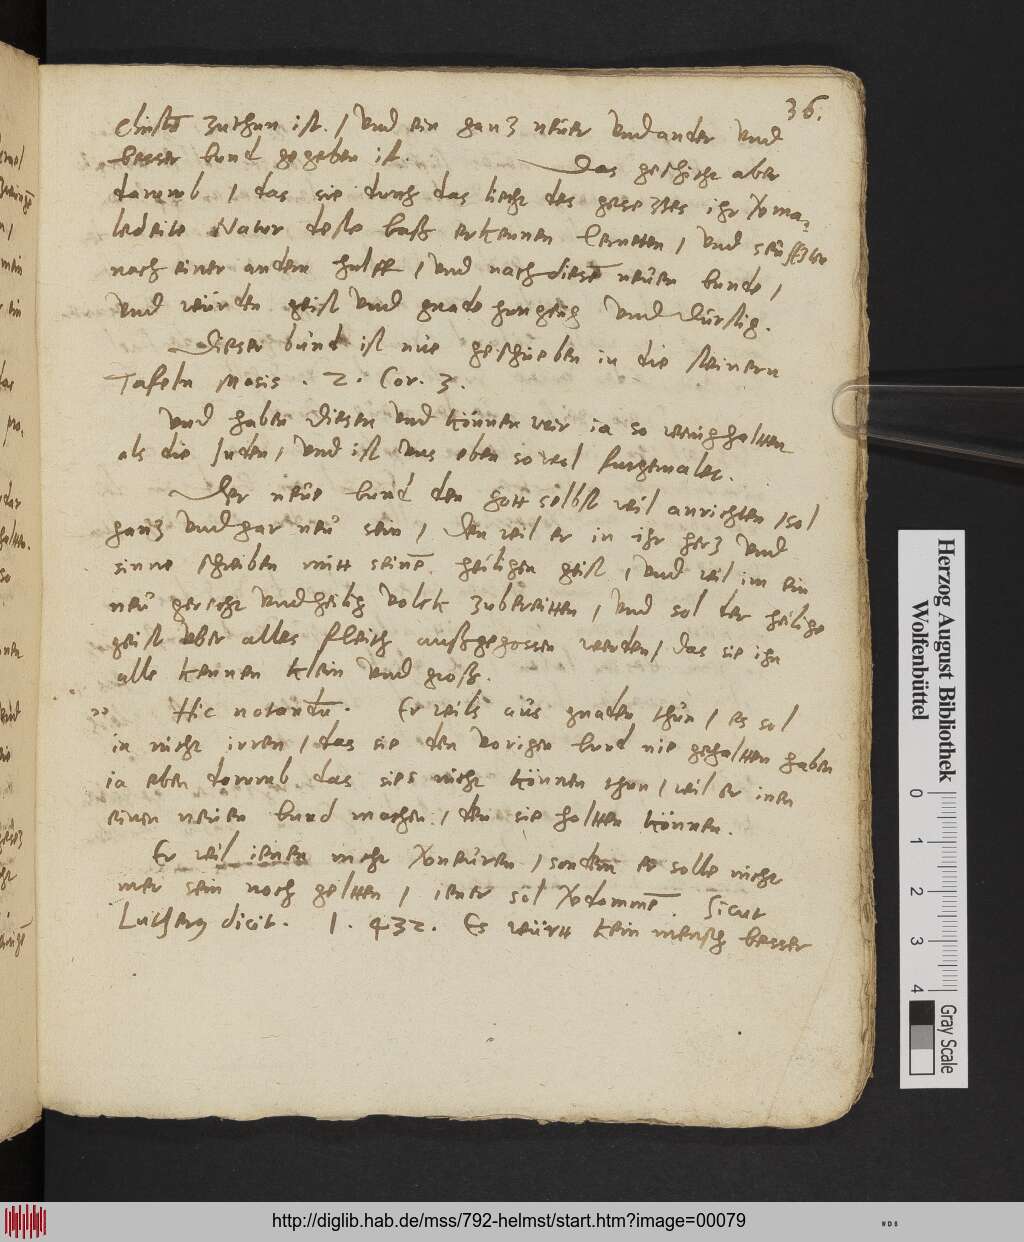 36.
Christo zuthun ist. / Vnd ein ganz neuer Vnd ander Vnd
besser bund gegeben ist. Das geschicht aber
darumb / das sie durch das liecht des gesezes ihr Verma=
ledeite Natur deste baß erkennen lerneten / Vnd seufzten
nach einer andern hulff / Vnd nach diesē neuen bunde /
Vnd wurden geist Vnd gnade hungerig Vnd Dürstig.
Dieser bund ist nie geschrieben in die steinern
Tafeln Mosis . 2 . Cor. 3.
Vnd haben diesen Vnd können wir ia so wenig haltten
als die Juden / Vnd ist Vns eben so viel furgemalet.
Der neue bund den gott selbst wil anrichten / sol
ganz Vnd gar neu sein / Den wil er in ihr herz Vnd
sinne schreiben mitt seinē heiligen geist / Vnd wil im ein
neu gerecht Vnd heilig Volck zubereitten / Vnd sol der heilige
geist vber alles fleisch außgegossen werden / das sie ihn
alle kennen klein Vnd groß.
Hic notandū. Er wils aus gnaden thun / es sol
in nicht irren / das sie den Vorigen bund nie gehaltten haben
ia eben darumb das sies nicht können thun / wil er inen
einen neuen bund machen / den sie haltten können.
Er wil ienen nicht Verneuren / sondern er solle nicht
mer sein noch geltten / iener sol Verdammē. Sicut
Lutherus dicit. 1. 432. Es wurtt kein mensch besser
Herzog August Bibliothek
Wolfenbüttel
0 1 2 3 4
Gray Scale
http://diglib.hab.de/mss/792-helmst/start.htm?image=00079